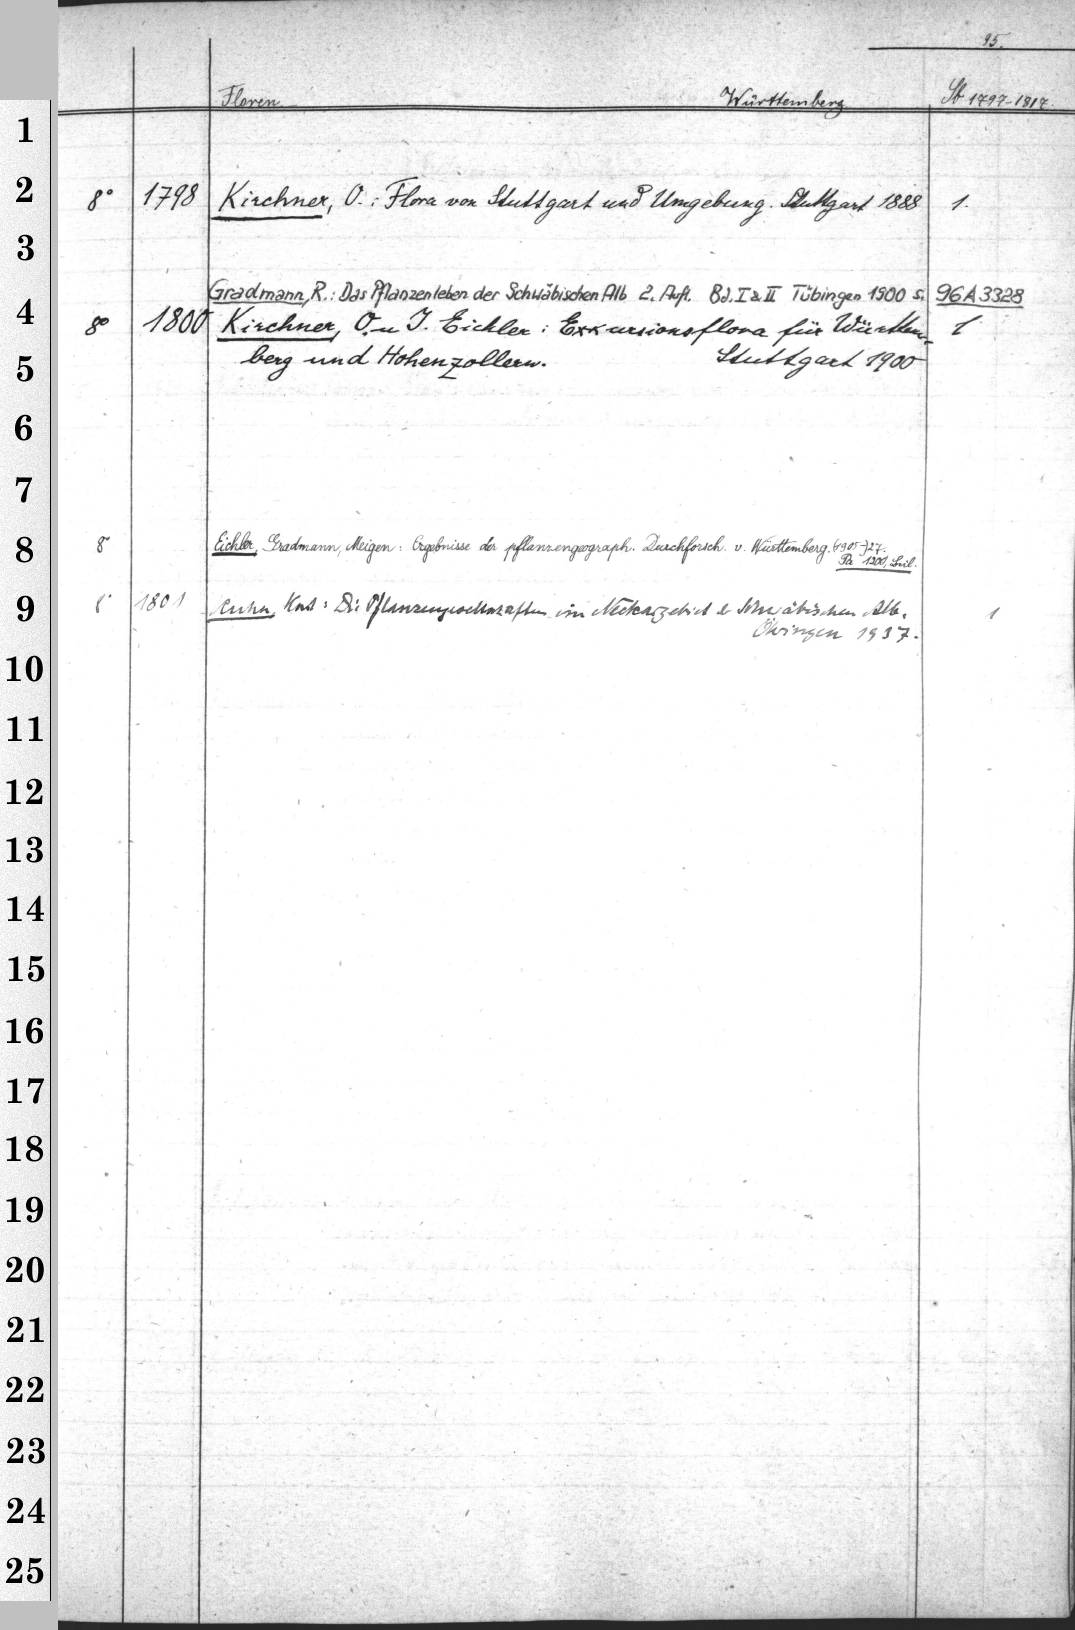 95.
Floren Württemberg St 1797-1817.
1
2 8° 1798 Kirchner, O.: Flora von Stuttgart und Umgebung. Stuttgart 1888 1.
3
Gradmann, R.: Das Pflanzenleben der Schwäbischen Alb 2. Aufl. Bd. I & II Tübingen 1900 s. 96A3328
4 8° 1800 Kirchner, O. u J. Eichler: Exkursionsflora für Württem- 1
5 berg und Hohenzollern. Stuttgart 1900
6
7
8 8° Eichler, Gradmann, Meigen: Ergebnisse der pflanzengeograph. Durchforsch. v. Württemberg. (1905-)27.
Pa 1200, Beil.
9 1801 Kuhn, Karl: Die Pflanzengesellschaften im Neckargebiet d. Schwäbischen Alb. 1
Öhringen 1937.
10
11
12
13
14
15
16
17
18
19
20
21
22
23
24
25